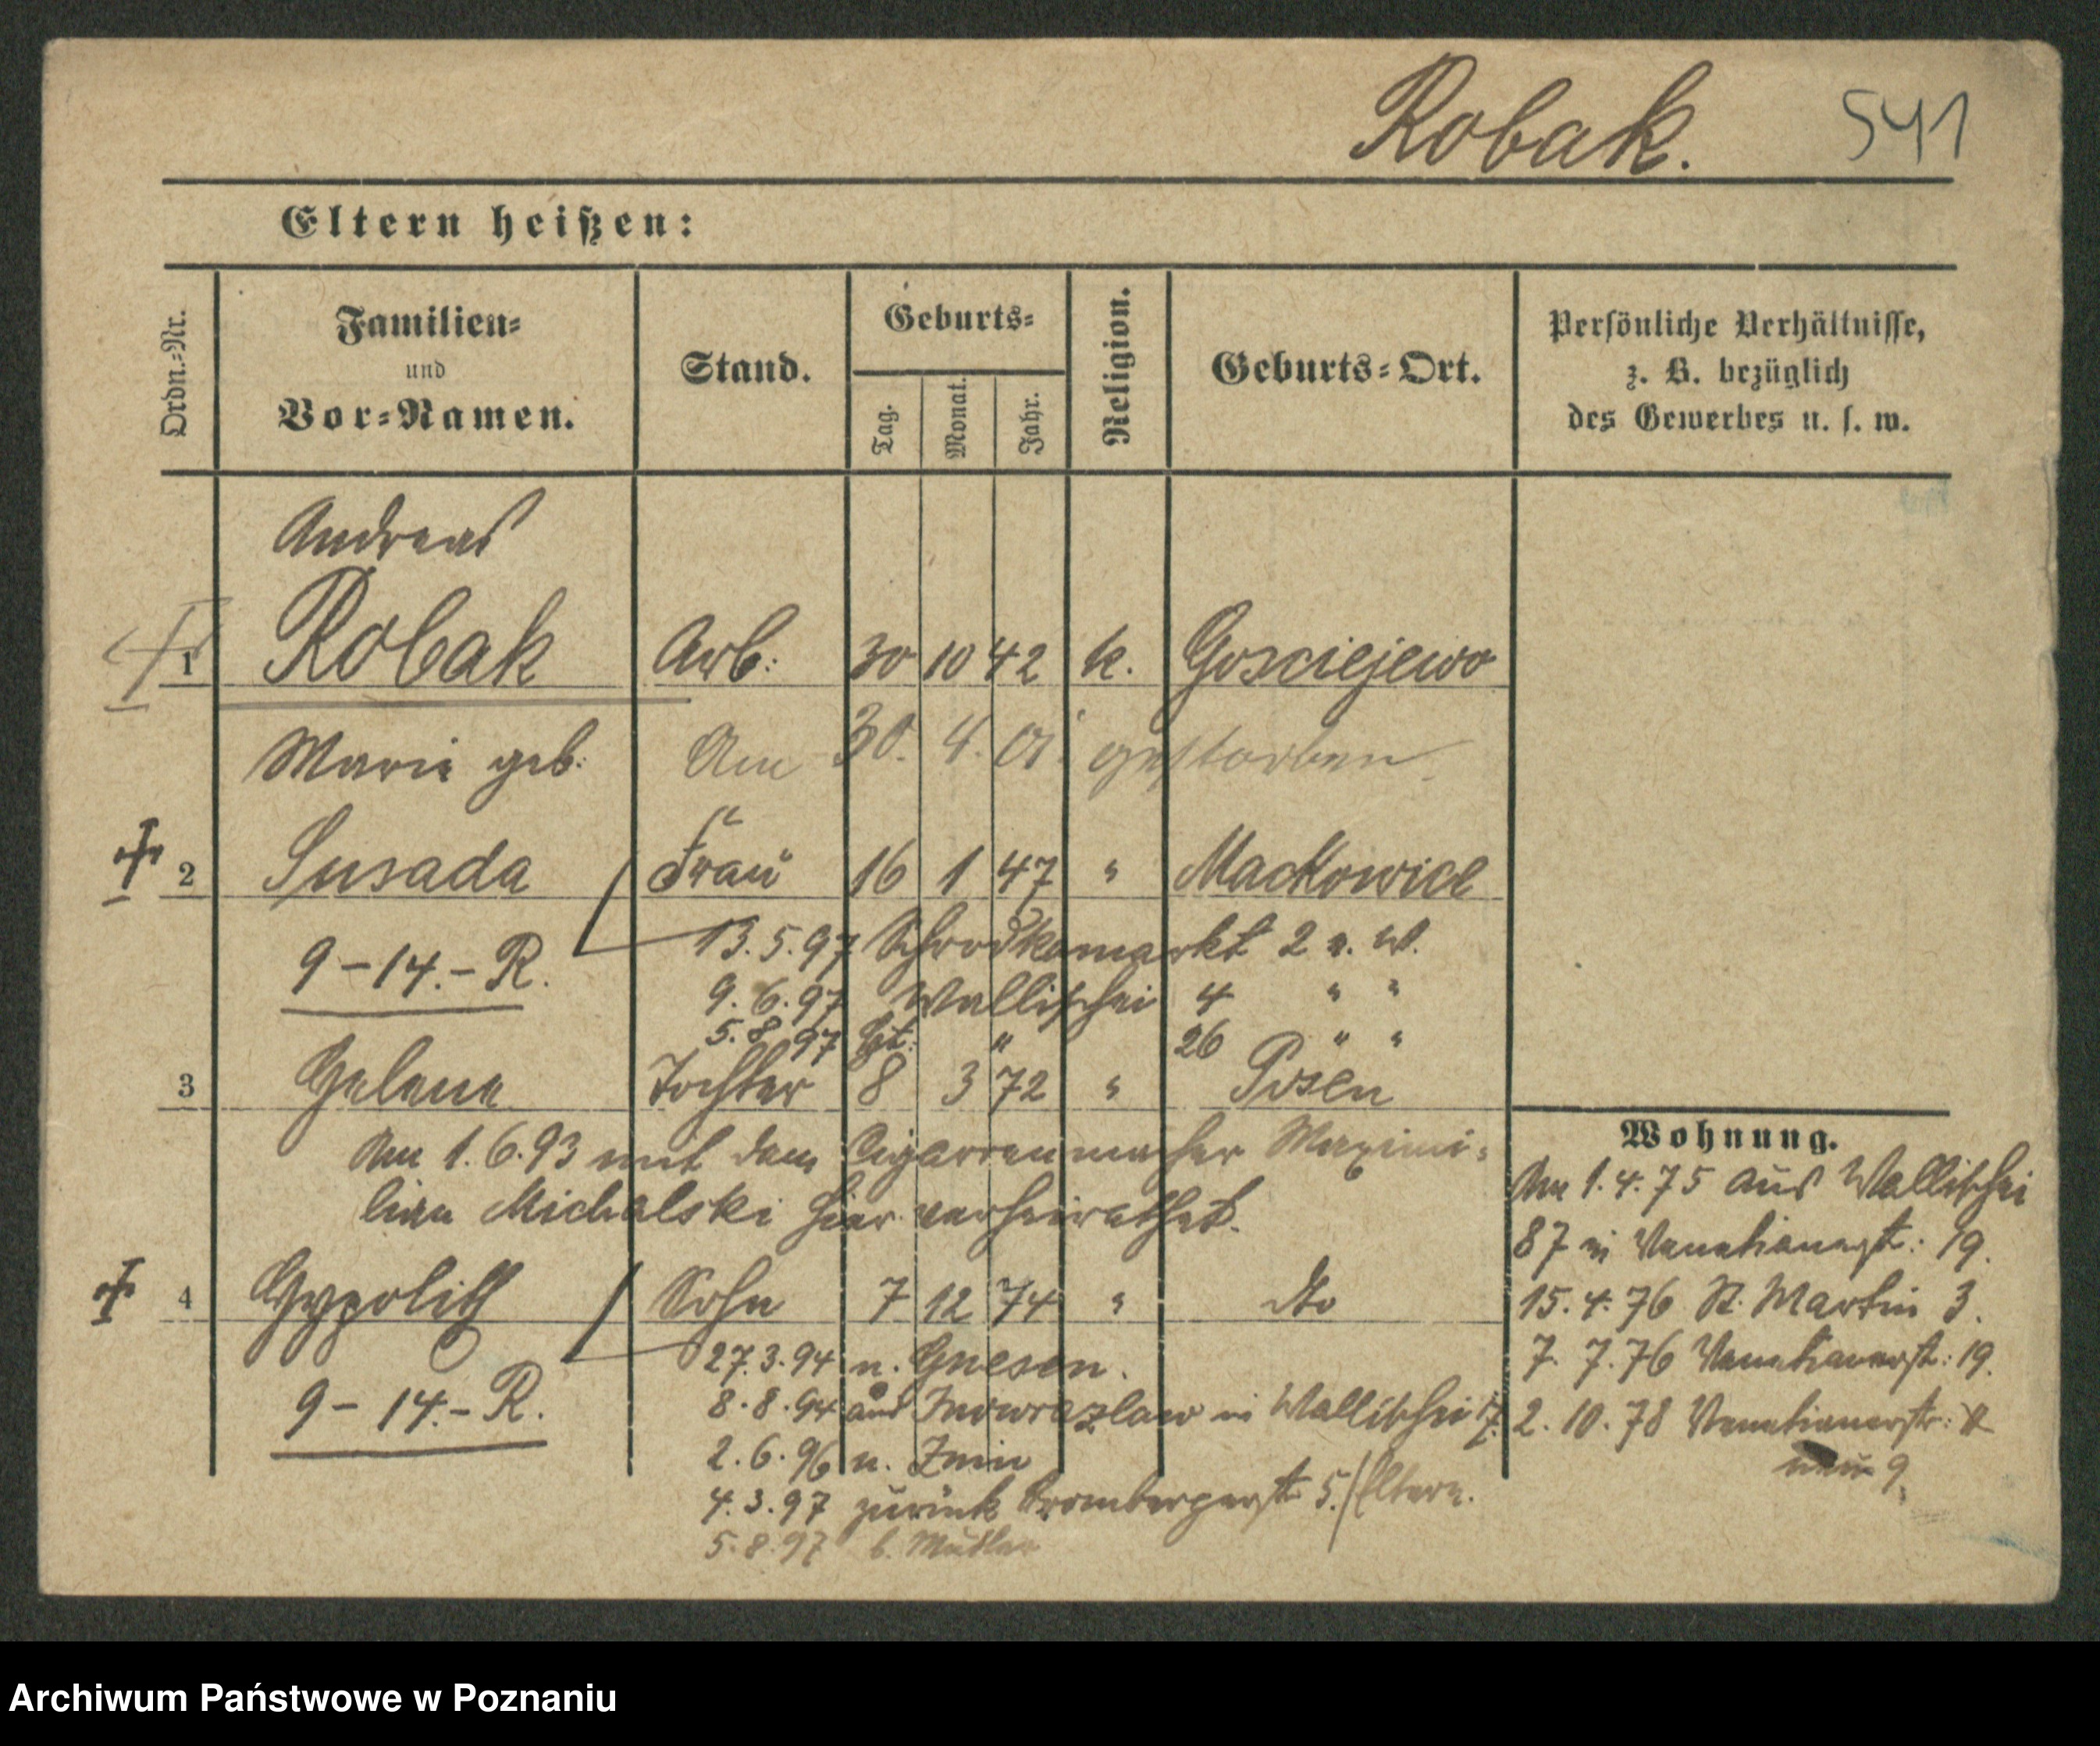 Robak. 541
Eltern heißen:
Ordn.=Nr.
Familien=
und
Vor=Namen.
Stand.
Geburts=
Tag.
Monat.
Jahr.
Religion.
Geburts=Ort.
Persönliche Verhältnisse,
z. B. bezüglich
des Gewerbes u. s. w.
Andreas
1 Robak Arb: 30 10 42 k. Gosciejewo
Am 30. 4. 01 gestorben
Marie geb:
2 Susada Frau 16 1 47 " Mackowice
9-14.-R.
13.5.97 Schrodkamarkt 2 n. W.
9.6.97 Wallischei 4 " "
5.8.97 " 26 " "
3 Helene Tochter 8 3 72 " Posen
Am 1.6.93 mit dem Cigarrenmacher Maximi=
lian Michalski hier verheirathet.
4 Hypolith Sohn 7 12 74 " dto
9-14.-R.
27.3.94 n. Gnesen.
8.8.94 aus Inowrazlaw in Wallischei 17.
2.6.96 n. Znin
4.3.97 zurück Brombergerst. 5./Eltern.
5.8.97 b. Mutter
Wohnung.
Am 1.4.75 aus Wallischei
87 in Venetianerst: 19.
15.4.76 St. Martin 3.
7. 7.76 Venetianerst: 19.
2.10.78 Venetianerstr:
neu 9.
Archiwum Państwowe w Poznaniu